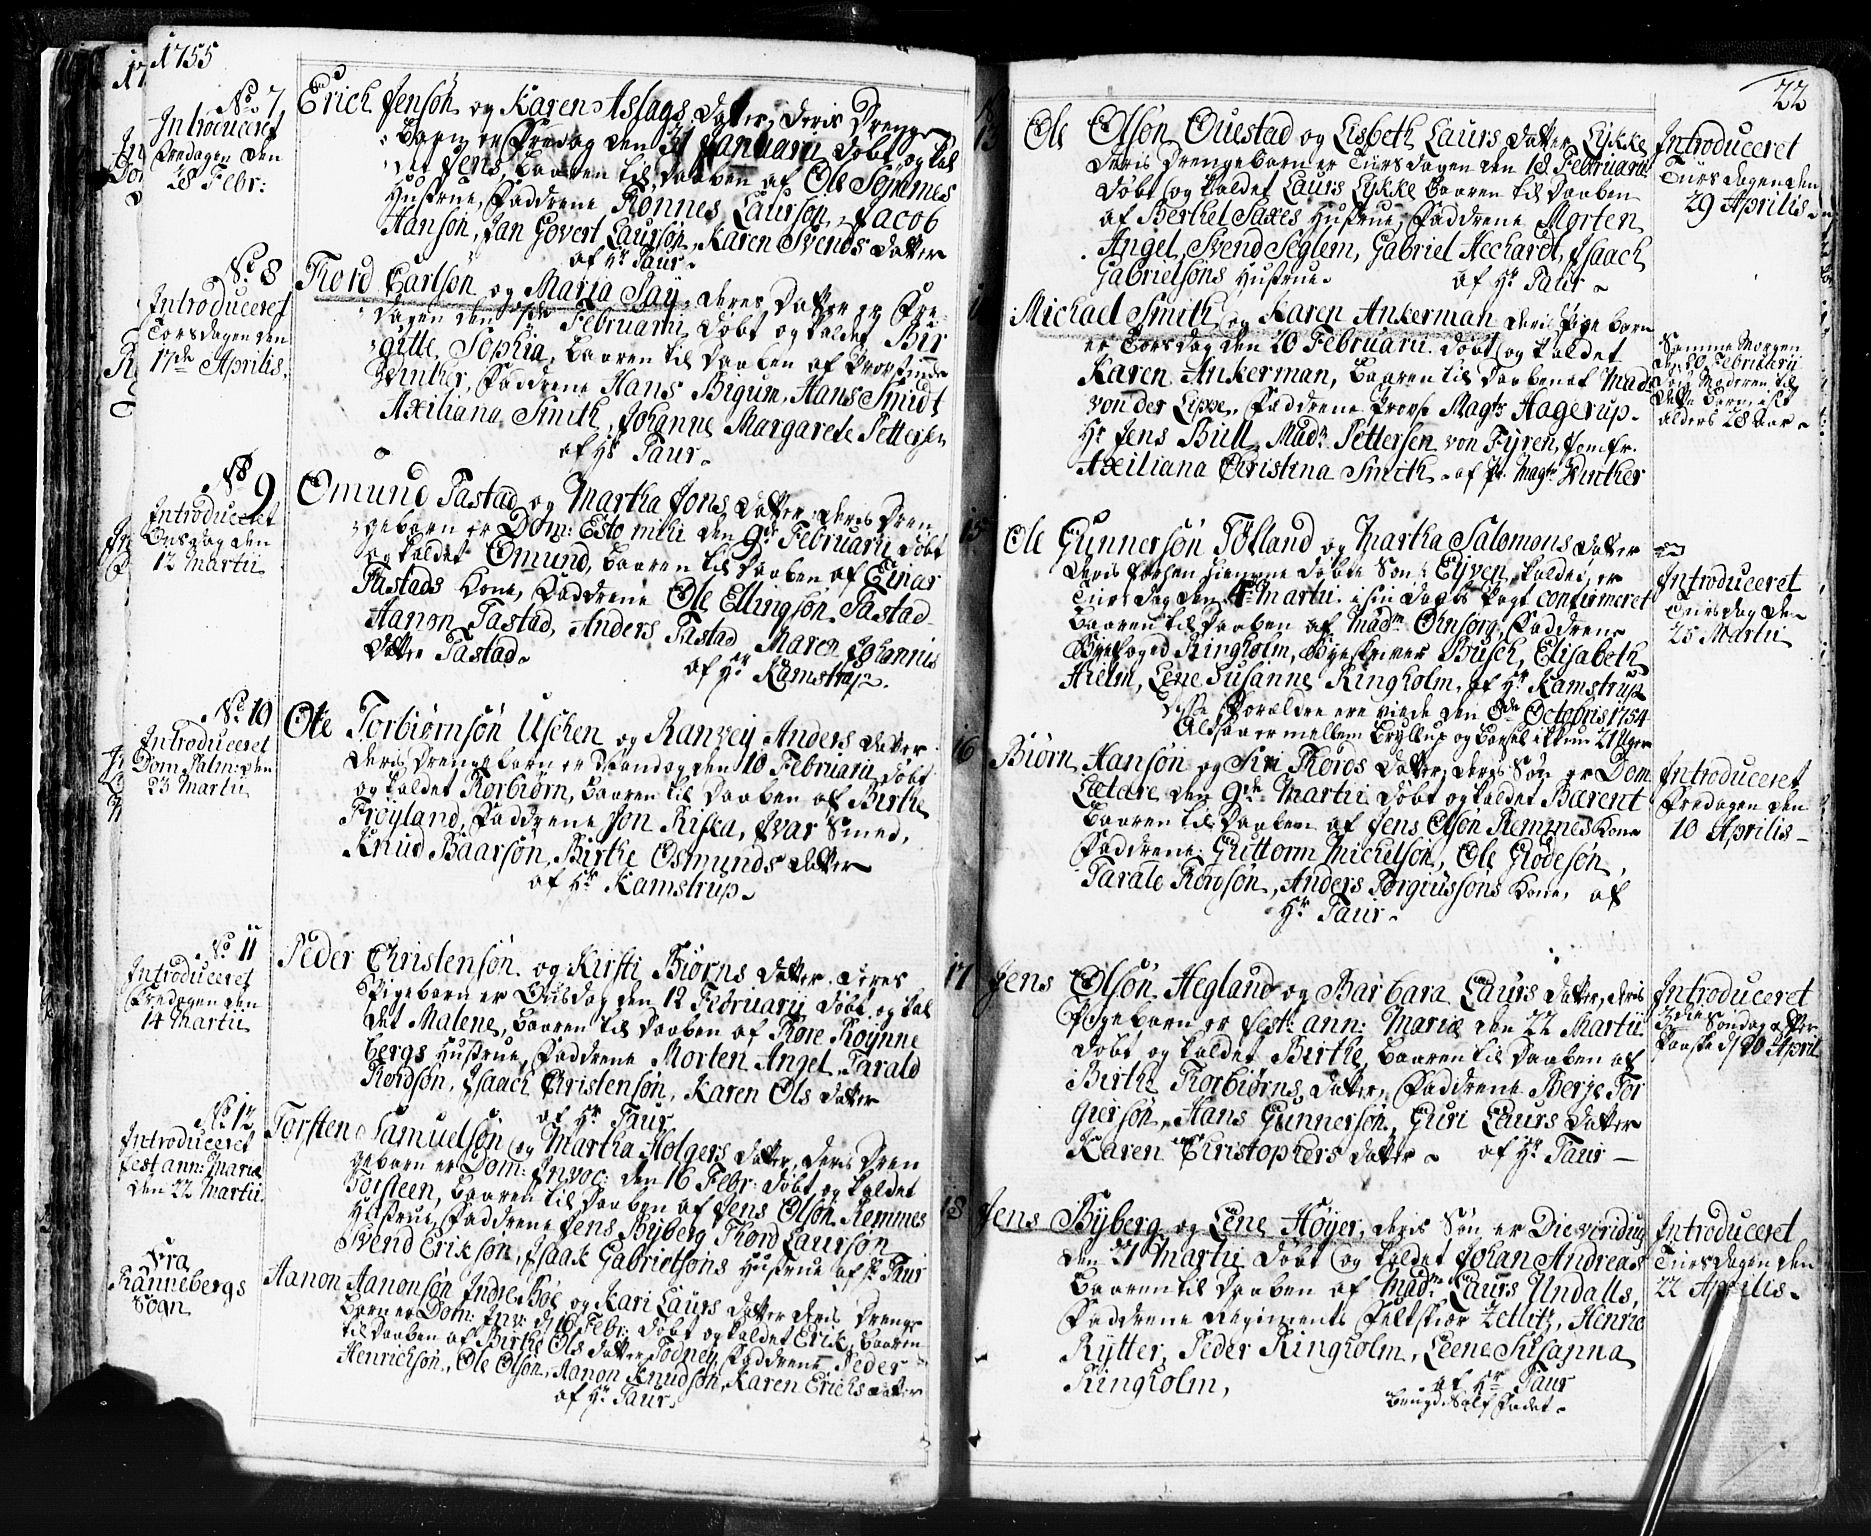 1755
No 7
Introduceret
Fredagen den
28 Febr:
Erich Jensøn og Karen Aslags datter, deris Drenge
barn er Fredag den 31 Januarii døbt og kal
det Jens, baaren til daaben af Ole Sømmes
Hustrue, Faddrene Rønnes Laursøn, Jacob
Hansøn, Jan Govert Laursøn, Karen Svends datter
af Hr Taur.
No 8
Introduceret
Torsdagen den
17de Aprilis.
Tiord Carlsøn og Maria Say, deres datter er Fre-
dagen den 7de Februarii døbt og kaldet Bir
gitte Sophia, baaren til daaben af Provstinde
Winther, Faddrene Hans Bigum, Hans Smidt
Axiliana Smith, Johanne Margarete Pettersen
af Hr Taur.
No 9
Introduceret
Onsdag den
12 Martii
Omund Tastad og Martha Jons datter, deris Dren
gebarn er Dom: Esto mihi den 9de Februarii døbt
og kaldet Omund, baaren til daaben af Einar
Tastads kone, Faddrene Ole Ellingsøn Tastad
Hanon Tastad, Anders Tastad Maren Johannis
datter Tastad.
af Hr Kamstrup.
No 10
Introduceret
Dom Palm: den
23 Martii
Ole Torbiørnsøn Uschen og Ranvey Anders datter
deris Drengebarn er Mandag den 10 Februarii døbt
og kaldet Torbiørn, baaren til daaben af Birthe
Frøyland, Faddrene Jon Riska, Ivar Smed,
Knud Baarsøn, Birthe Osmunds datter
af Hr Kamstrup.
No 11
Introduceret
Fredagen den
14 Martii
Peder Christensøn og Kirsti Biørns datter, deres
Pigebarn er Onsdag den 12 Februarii døbt og kal
det Malene, baaren til daaben af Tore Røynne
bergs Hustrue, Faddrene Morten Angel, Tarald
Tordsøn, Isaach Christensøn, Karen Ols datter
af Hr Taur
No 12
Introduceret
fest ann: Mariæ
den 22 Martii
Torsten Samuelsøn og Martha Holgers datter, deris Dren
gebarn er Dom: Invoc: den 16 Febr: døbt og kaldet
Torsteen, baaren til daaben af Jens Olsøn Remmes
Hustrue, Faddrene Jens Byberg Thord Laursøn
Svend Eriksøn, Isaak Gabrielsøns Hustrue af Hr Taur
Fra
Rannebergs
Sogn
Aanon Aanonsøn Indre Bøe og Kari Laurs datter deris Drenge
barn er Dom: Inv: d 16 Febr: døbt og kaldet Erik, baaren
til daaben af Birthe Ols datter Todnem, Faddrene Peder
Henrichsøn, Ole Olsøn, Aanon Knudsøn, Karen Erichs datter
af Hr Taur.
22
13 Ole Olsøn Ouestad og Lisbeth Laurs datter Lykke
deris Drengebarn er Tiirsdagen den 18 Februarii
døbt og kaldet Laurs Lykke baaren til daaben
af Berthel Saxes Hustrue, Faddrene Morten
Angel, Svend Seglem, Gabriel Hechardt, Isaach
Gabrielsøns Hustrue. af Hr Taur.
Introduceret
Tiirsdagen den
29 Aprilis.
Michael Smith og Karen Ankerman deris Pigebarn
er Torsdag den 20 Februarii døbt og kaldet
Karen Ankerman, baaren til daaben af Mad:
von der Lippe, Faddrene Provst Magtr Hagerup.
Hr Jens Bull Madm Pettersen von Fyren, Jomfr.
Axiliana Christina Smith. af Pr Magtr Winther
Samme Morgen
den 20 Februarii
døde Moderen til
dette barn, ætat
alders 28 Aar.
15 Ole Gunnersøn Tøtland og Martha Salomons datter
deris forhen hiemme døbte Søn: Eyven kaldet, er
Tiirsdag den 4 Martii i sin daabs Pagt confirmeret
baaren til daaben af Madm Omsorg, Faddrene
Byefoged Ringholm, Byeskriver Busch, Elisabeth
Hielm, Lene Susanne Ringholm, af Hr Kamstrup
Disse Forældre ere viede den 8de Octobris 1754
Altsaa er mellem Bryllup og Barsel ikkun 21 Uger
Introduceret
Tiirsdag den
25 Martii
16 Biørn Hansøn og Siri Thords datter, deris Søn er Dom
Lætare den 9de Martii døbt og kaldet Bærent
baaren til daaben af Jens Olsøn Remmes kone
Faddrene: Guttorm Michelsøn, Ole Rodesøn,
Tarald Tordsøn, Anders Torgiussøns kone, af
Hr Taur.
Introduceret
Fredagen den
10 Aprilis
17 Jens Olsøn Hegland og Barbara Laurs datter, deris
Pigebarn er fest: ann: Mariæ den 22 Martii
døbt og kaldet Birthe, baaren til daaben af
Birthe Torbiørns datter, Faddrene Berje Tor
giersøn, Hans Gunnersøn, Guri Laurs datter
Karen Christophers datter. af Hr Taur
Introduceret
3die Søndag efter
Paaske d 20 April
18 Jens Byberg og Lene Høyer, deris Søn er Die viridium
den 27 Martii døbt og kaldet Johan Andreas
baaren til daaben af Madm Laurs Undalls,
Faddrene Regiments Feltskiær Zetlitz, Henric
Rytter, Peder Ringholm, Leene Susanna
Ringholm,
af Hr Taur
Introduceret
Tiirsdagen den
22 Aprilis.